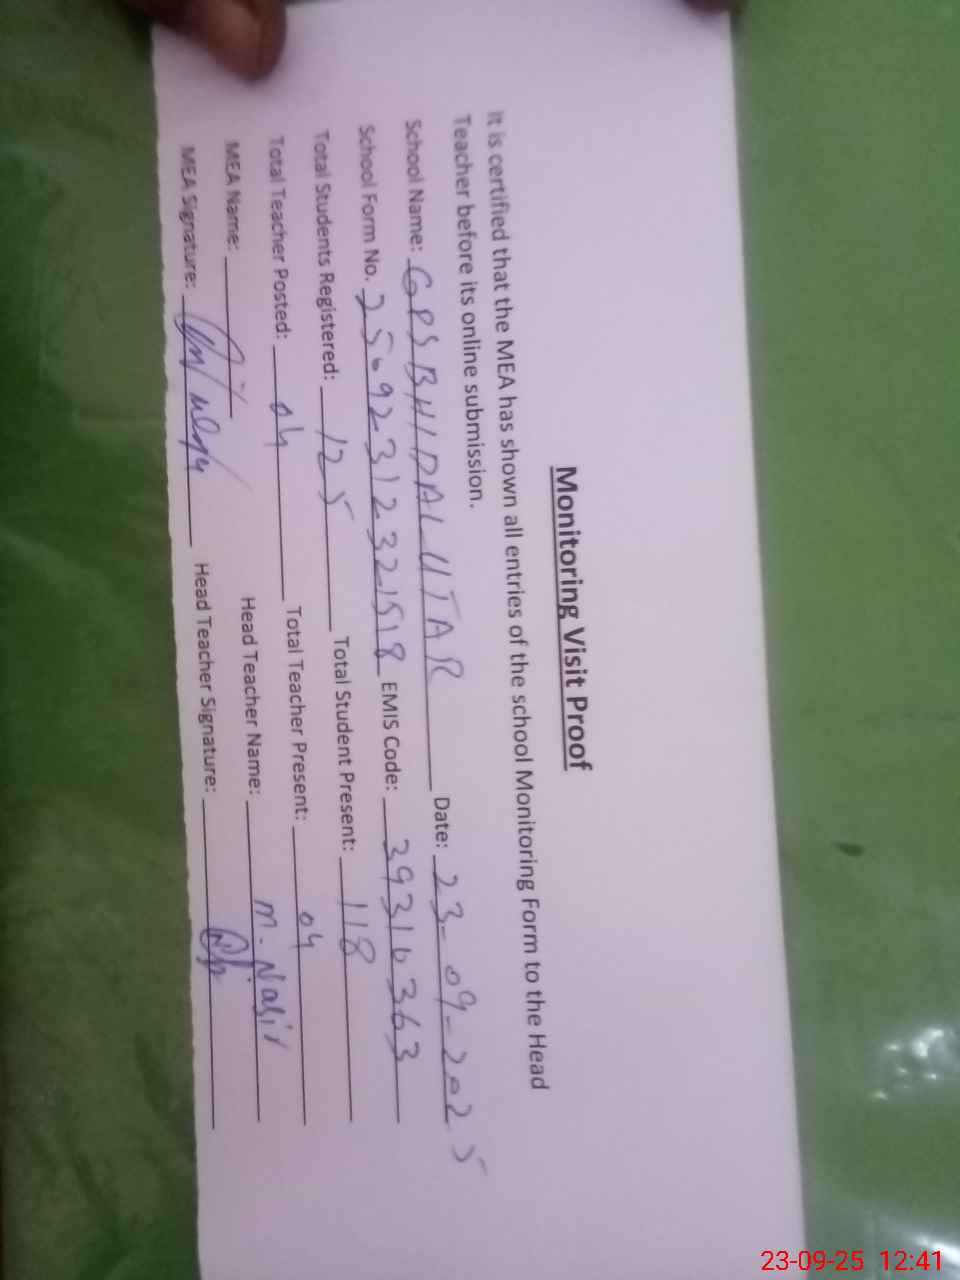 Monitoring Visit Proof
It is certified that the MEA has shown all entries of the school Monitoring Form to the Head
Teacher before its online submission.
School Name: GPS BHIDAL UTAR Date: 23-09-2025
School Form No. 25092312321518 EMIS Code: 39316363
Total Students Registered: 125 Total Student Present: 118
Total Teacher Posted: 04 Total Teacher Present: 04
MEA Name: Head Teacher Name: M. Nasir
MEA Signature: Head Teacher Signature:
23-09-25 12:41